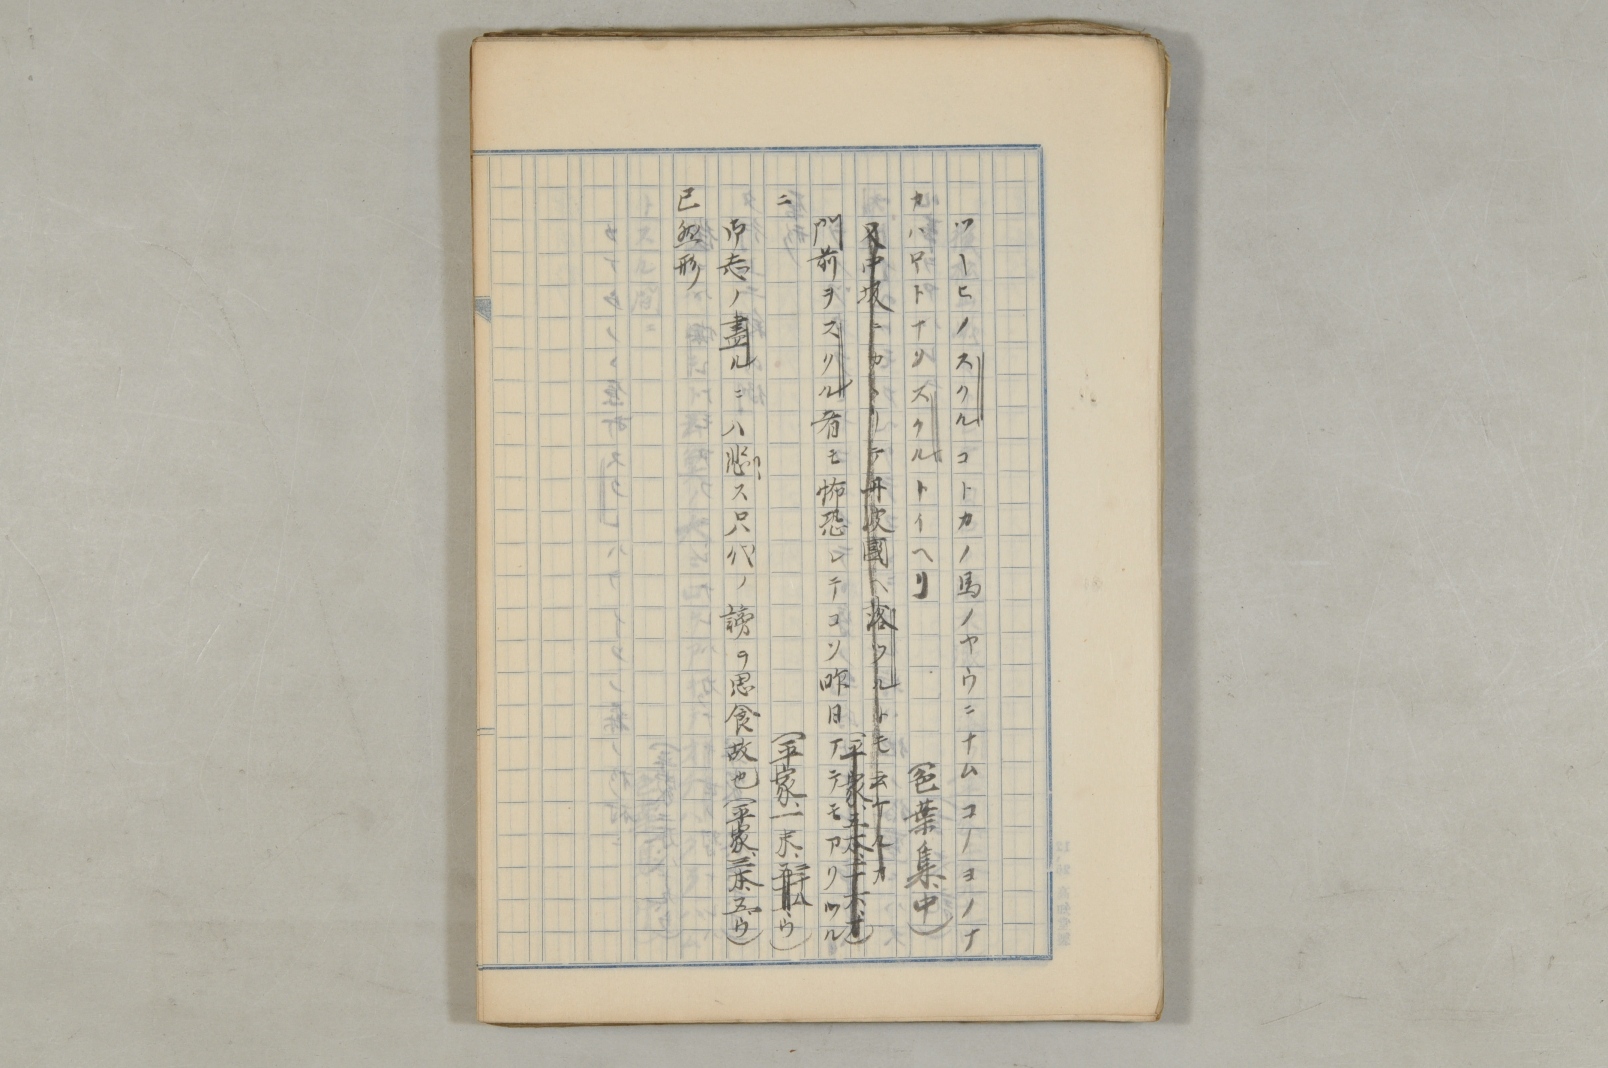 ツーヒノスクルコトカノ馬ノヤウニナムコノヨノナ
カハ尸トナリスクルトイヘリ
（色葉集、中）
又中坂ニカヽリテ丹波國ヘ落ツルトモ云ケルカ
（平家、五本、二十六、オ）
門前ヲスクル者モ怖恐レテコソ昨日マテモアリツル
ニ
（平家、一末、ウ）
御志ノ盡ルニハ悲ス只代ノ謗ヲ思食故也（平家、三末、五、ウ）
已然形